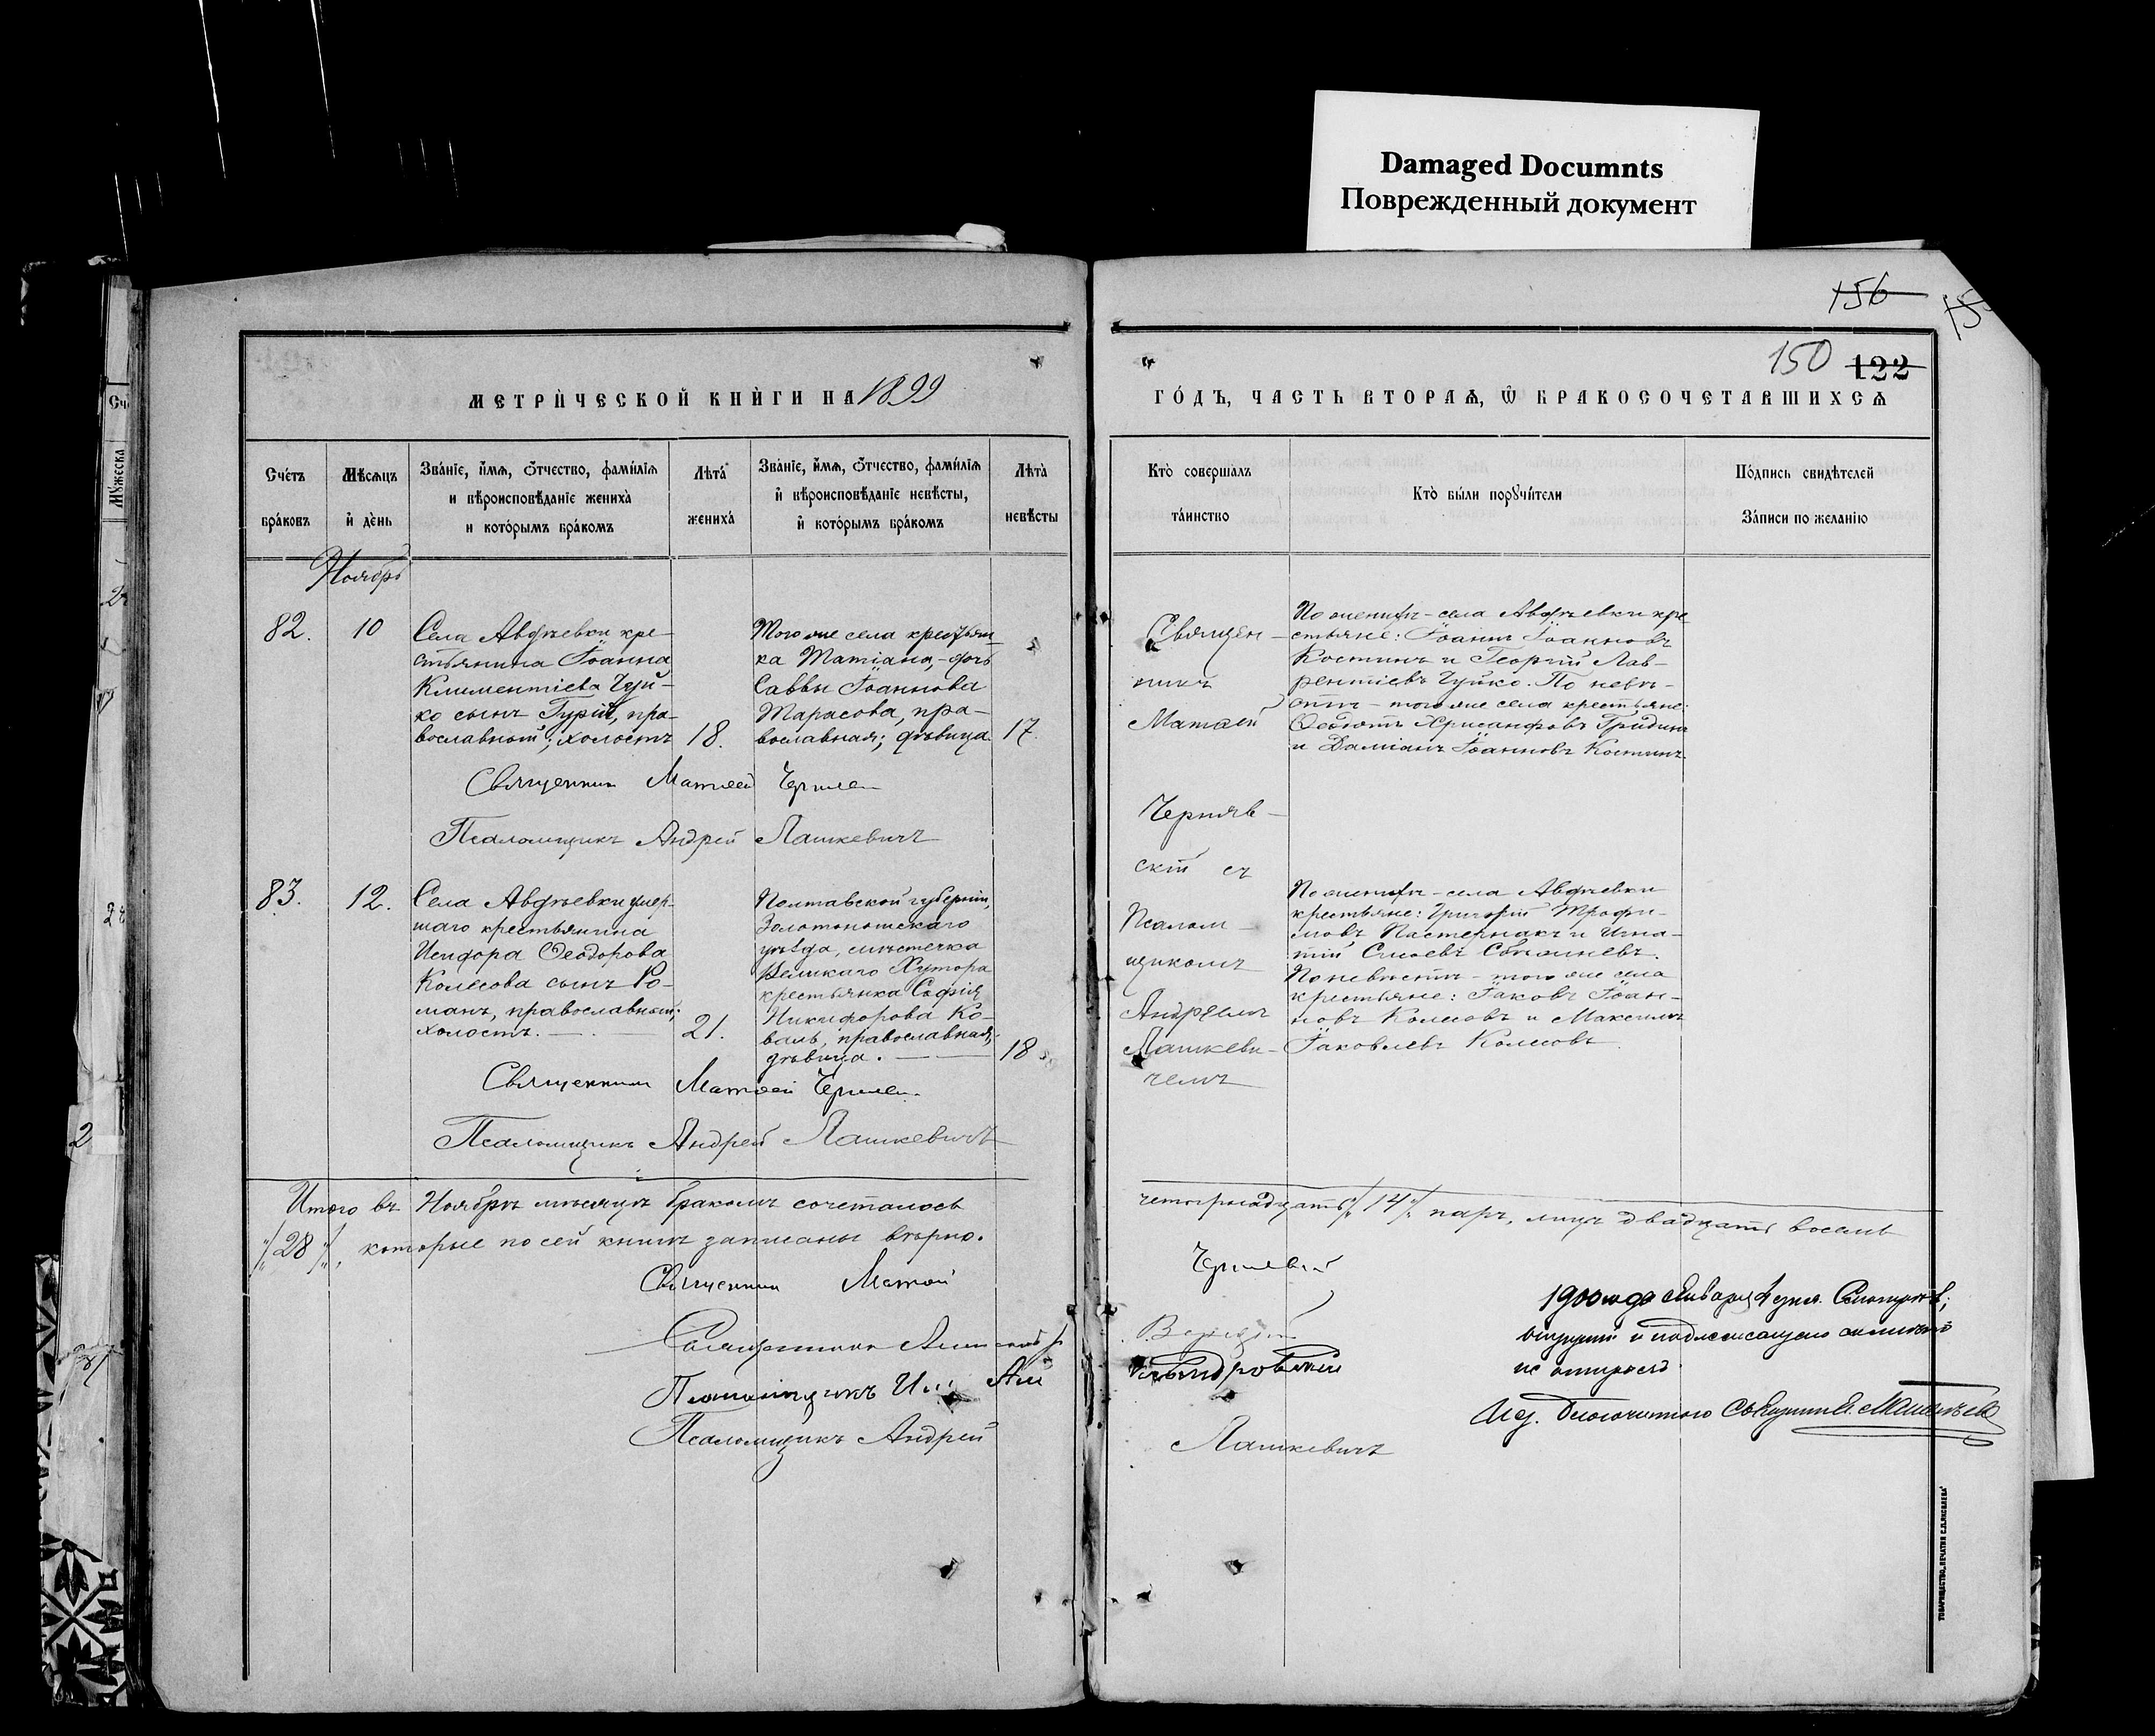 Damaged Documnts
Поврежденный документ
156
150 122
МЕТРИЧЕСКОЙ КНИГИ НА 1899
ГОДЪ, ЧАСТЬ ВТОРАѦ, Ѡ БРАКОСОЧЕТАВШИХСѦ
Счетъ браковъ
Мѣсѧцъ и день
Званіе, имѧ, отчество, фамиліѧ
и вѣроисповѣданіе жениха
и которымъ бракомъ
Лѣта жениха
Званіе, имѧ, отчество, фамиліѧ
и вѣроисповѣданіе невѣсты,
и которымъ бракомъ
Лѣта невѣсты
Кто совершалъ
таинство
Кто были порꙋчители
Подпись свидѣтелей
записи по желанію
Ноябрь
82. 10
Села Авдѣевки кре-
стьянина Іоанна
Климентіева Чуй-
ко сынъ Гурій, пра-
вославный; холостъ
18.
Того же села крестьян-
ка Татіана, дочь
Саввы Іоаннова
Тарасова, пра-
вославная; дѣвица
17.
Священ-
никъ
Матѳей
Черняв-
скій съ
Псалом-
щикомъ
Андреемъ
Лашкеви-
чемъ
По женихѣ - села Авдѣевки кре
стьяне: Іоаннъ Іоанновъ
Костинъ и Георгій Лав-
рентіевъ Чуйко. По невѣ-
стѣ - того же села крестьяне:
Ѳеодотъ Хрисанфовъ Гридинъ
и Даміанъ Іоанновъ Костинъ.
Священникъ Матѳей
Псаломщикъ Андрей Лашкевичъ
83. 12.
Села Авдѣевки умер-
шаго крестьянина
Исидора Ѳеодорова
Колесова сынъ Ро-
манъ, православный;
холостъ.
21.
Полтавской губерніи,
Золотоношскаго
уѣзда, мѣстечка
Великаго Хутора
крестьянка Софія
Никифорова Ко-
валь, православная,
дѣвица.
18
По женихѣ - села Авдѣевки
крестьяне: Григорій Трофи-
мовъ Пастернакъ и Игна-
тій
По невѣстѣ - того же села
крестьяне: Іаковъ Іоан-
новъ Колесовъ и Максимъ
Іаковлевъ Колесовъ
Священникъ Матѳей
Псаломщикъ Андрей Лашкевичъ
Итого въ Ноябрѣ мѣсяцѣ бракомъ сочеталось четырнадцать /14/ паръ, лицъ двадцать восемь
/28/, которые по сей книгѣ записаны вѣрно.
Священникъ Матѳей
Священникъ
Псаломщикъ
Псаломщикъ Андрей Лашкевичъ
1900 года Января
не
ТОВАРИЩЕСТВО „ПЕЧАТНЯ С.П.ЯКОВЛЕВА“